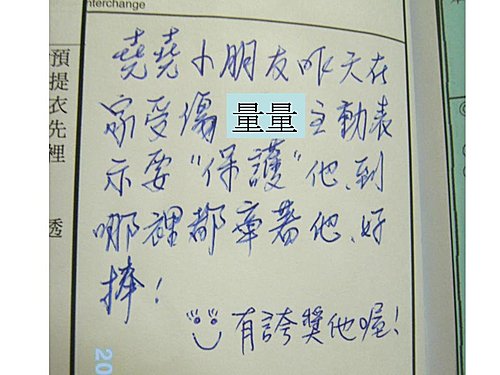 nterchange
堯堯小朋友昨天在
家受傷量量主動表
示要"保護"他、到
哪裡都牽著他、好
棒!
有誇獎他喔!
預提衣先裡
透
20